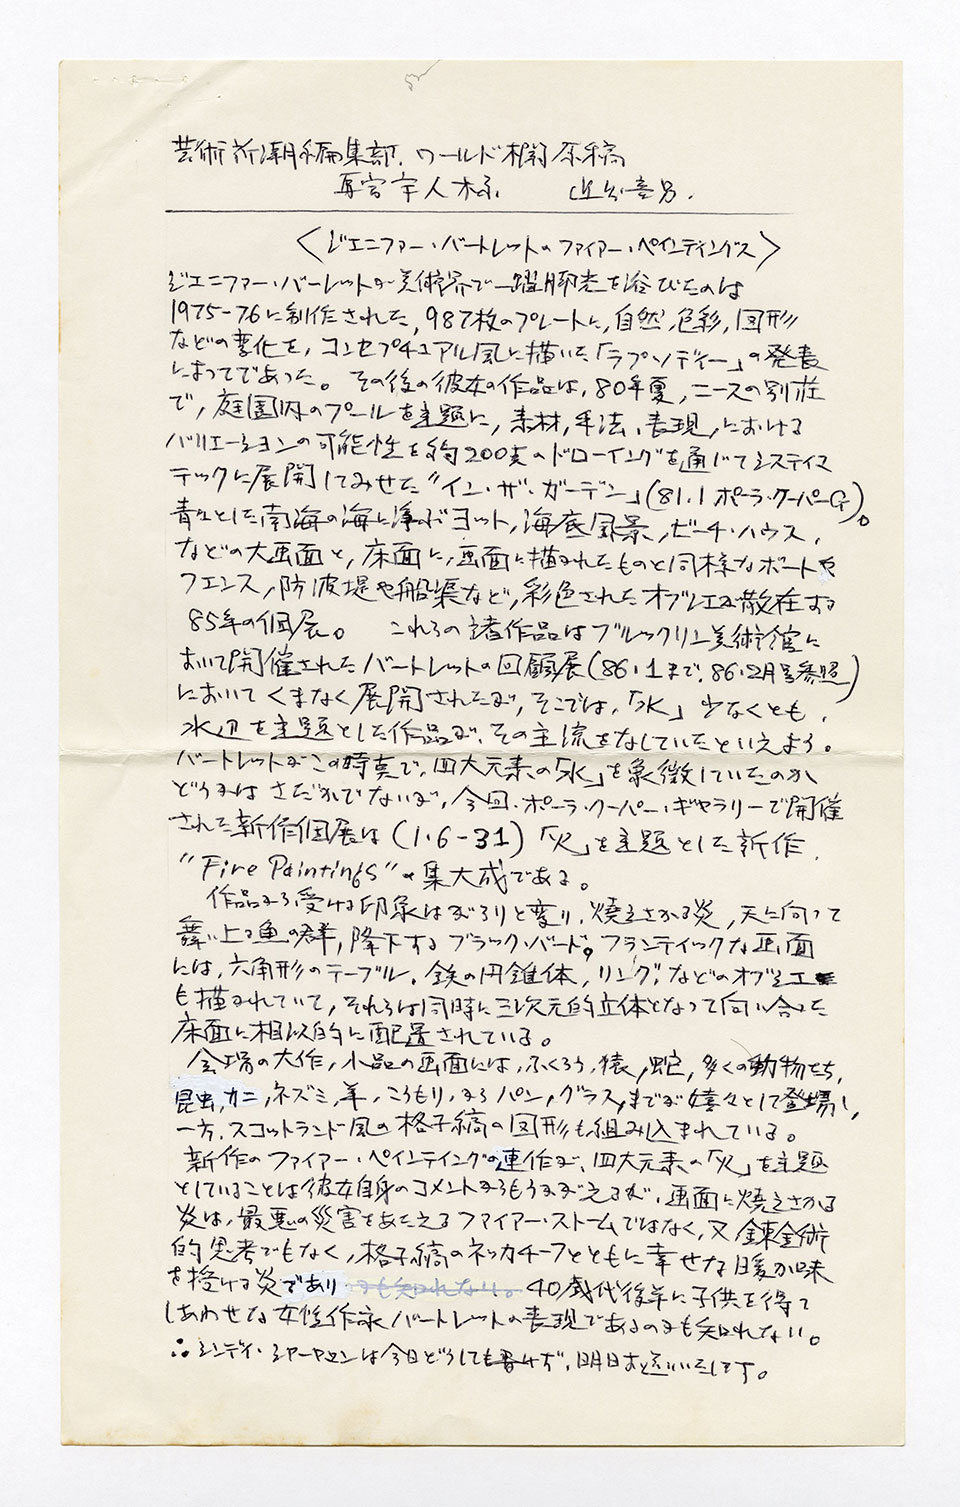 芸術新潮編集部. ワールド欄原稿
宇人様
〈ジェニファー・バートレットのファイアー・ペインティングス〉
ジェニファー・バーレットが美術界で一躍脚光を浴びたのは
1975-76に制作された, 987枚のプレートに, 自然, 色彩, 図形
などの変化を, コンセプチュアル風に描いた「ラプソディー」の発表
によってであった。 その後の彼女の作品は, 80年夏, ニースの別荘
で, 庭園内のプールを主題に, 素材, 手法, 表現, における
バリエーションの可能性を約200点のドローイングを通じてシステイマ
テックに展開してみせた“イン・ザ・ガーデン」(81.1 ポーラ・クーパーG)。
青々とした南海の海に浮ぶヨット, 海底風景, ビーチ・ハウス,
などの大画面と, 床面に, 画面に描かれたものと同様なボートや
フェンス, 防波堤や船渠など, 彩色されたオブジェが散在する
85年の個展。 これらの諸作品はブルックリン美術館に
おいて開催されたバートレットの回顧展(86・1まで, 86・2月号参照)
においてくまなく展開されたが, そこでは,「水」少なくとも,
水辺を主題とした作品が, その主流をなしていたといえよう。
バートレットがこの時点で, 四大元素の「水」を象徴していたのか
どうかはさだかでないが, 今回・ポーラ・クーパー・ギャラリーで開催
された新作個展は (1・6-31) 「火」を主題とした新作,
“Fire Paintings”の集大成である。
作品から受ける印象はがらりと変り, 燃えさかる炎, 天に向って
舞い上る魚の群, 降下するブラック・バード。フランティックな画面
には, 六角形のテーブル, 鉄の円錐体, リング, などのオブジェ
も描かれていて, それらは同時に三次元的立体となって向い合った
床面に相似的に配置されている。
会場の大作, 小品の画面には, ふくろう, 猿, 蛇, 多くの動物たち,
昆虫, カニ, ネズミ, 羊, こうもり, からパン, グラス, までが嬉々として登場し,
一方, スコットランド風の格子縞の図形も組み込まれている。
新作のファイアー・ペインティングの連作が, 四大元素の「火」を主題
としていることは彼女自身のコメントからもうかがえるが, 画面に燃えさかる
炎は, 最悪の災害をあたえるファイアー・ストームではなく, 又錬金術
的思考でもなく, 格子縞のネッカチーフとともに幸せな暖か味
を授ける炎であり かも知れない。 40歳代後半に子供を得て
しあわせな女性作家バートレットの表現であるのかも知れない。
∴シンディ・シャーマンは今日どうしても書けず, 明日お送りいたします。